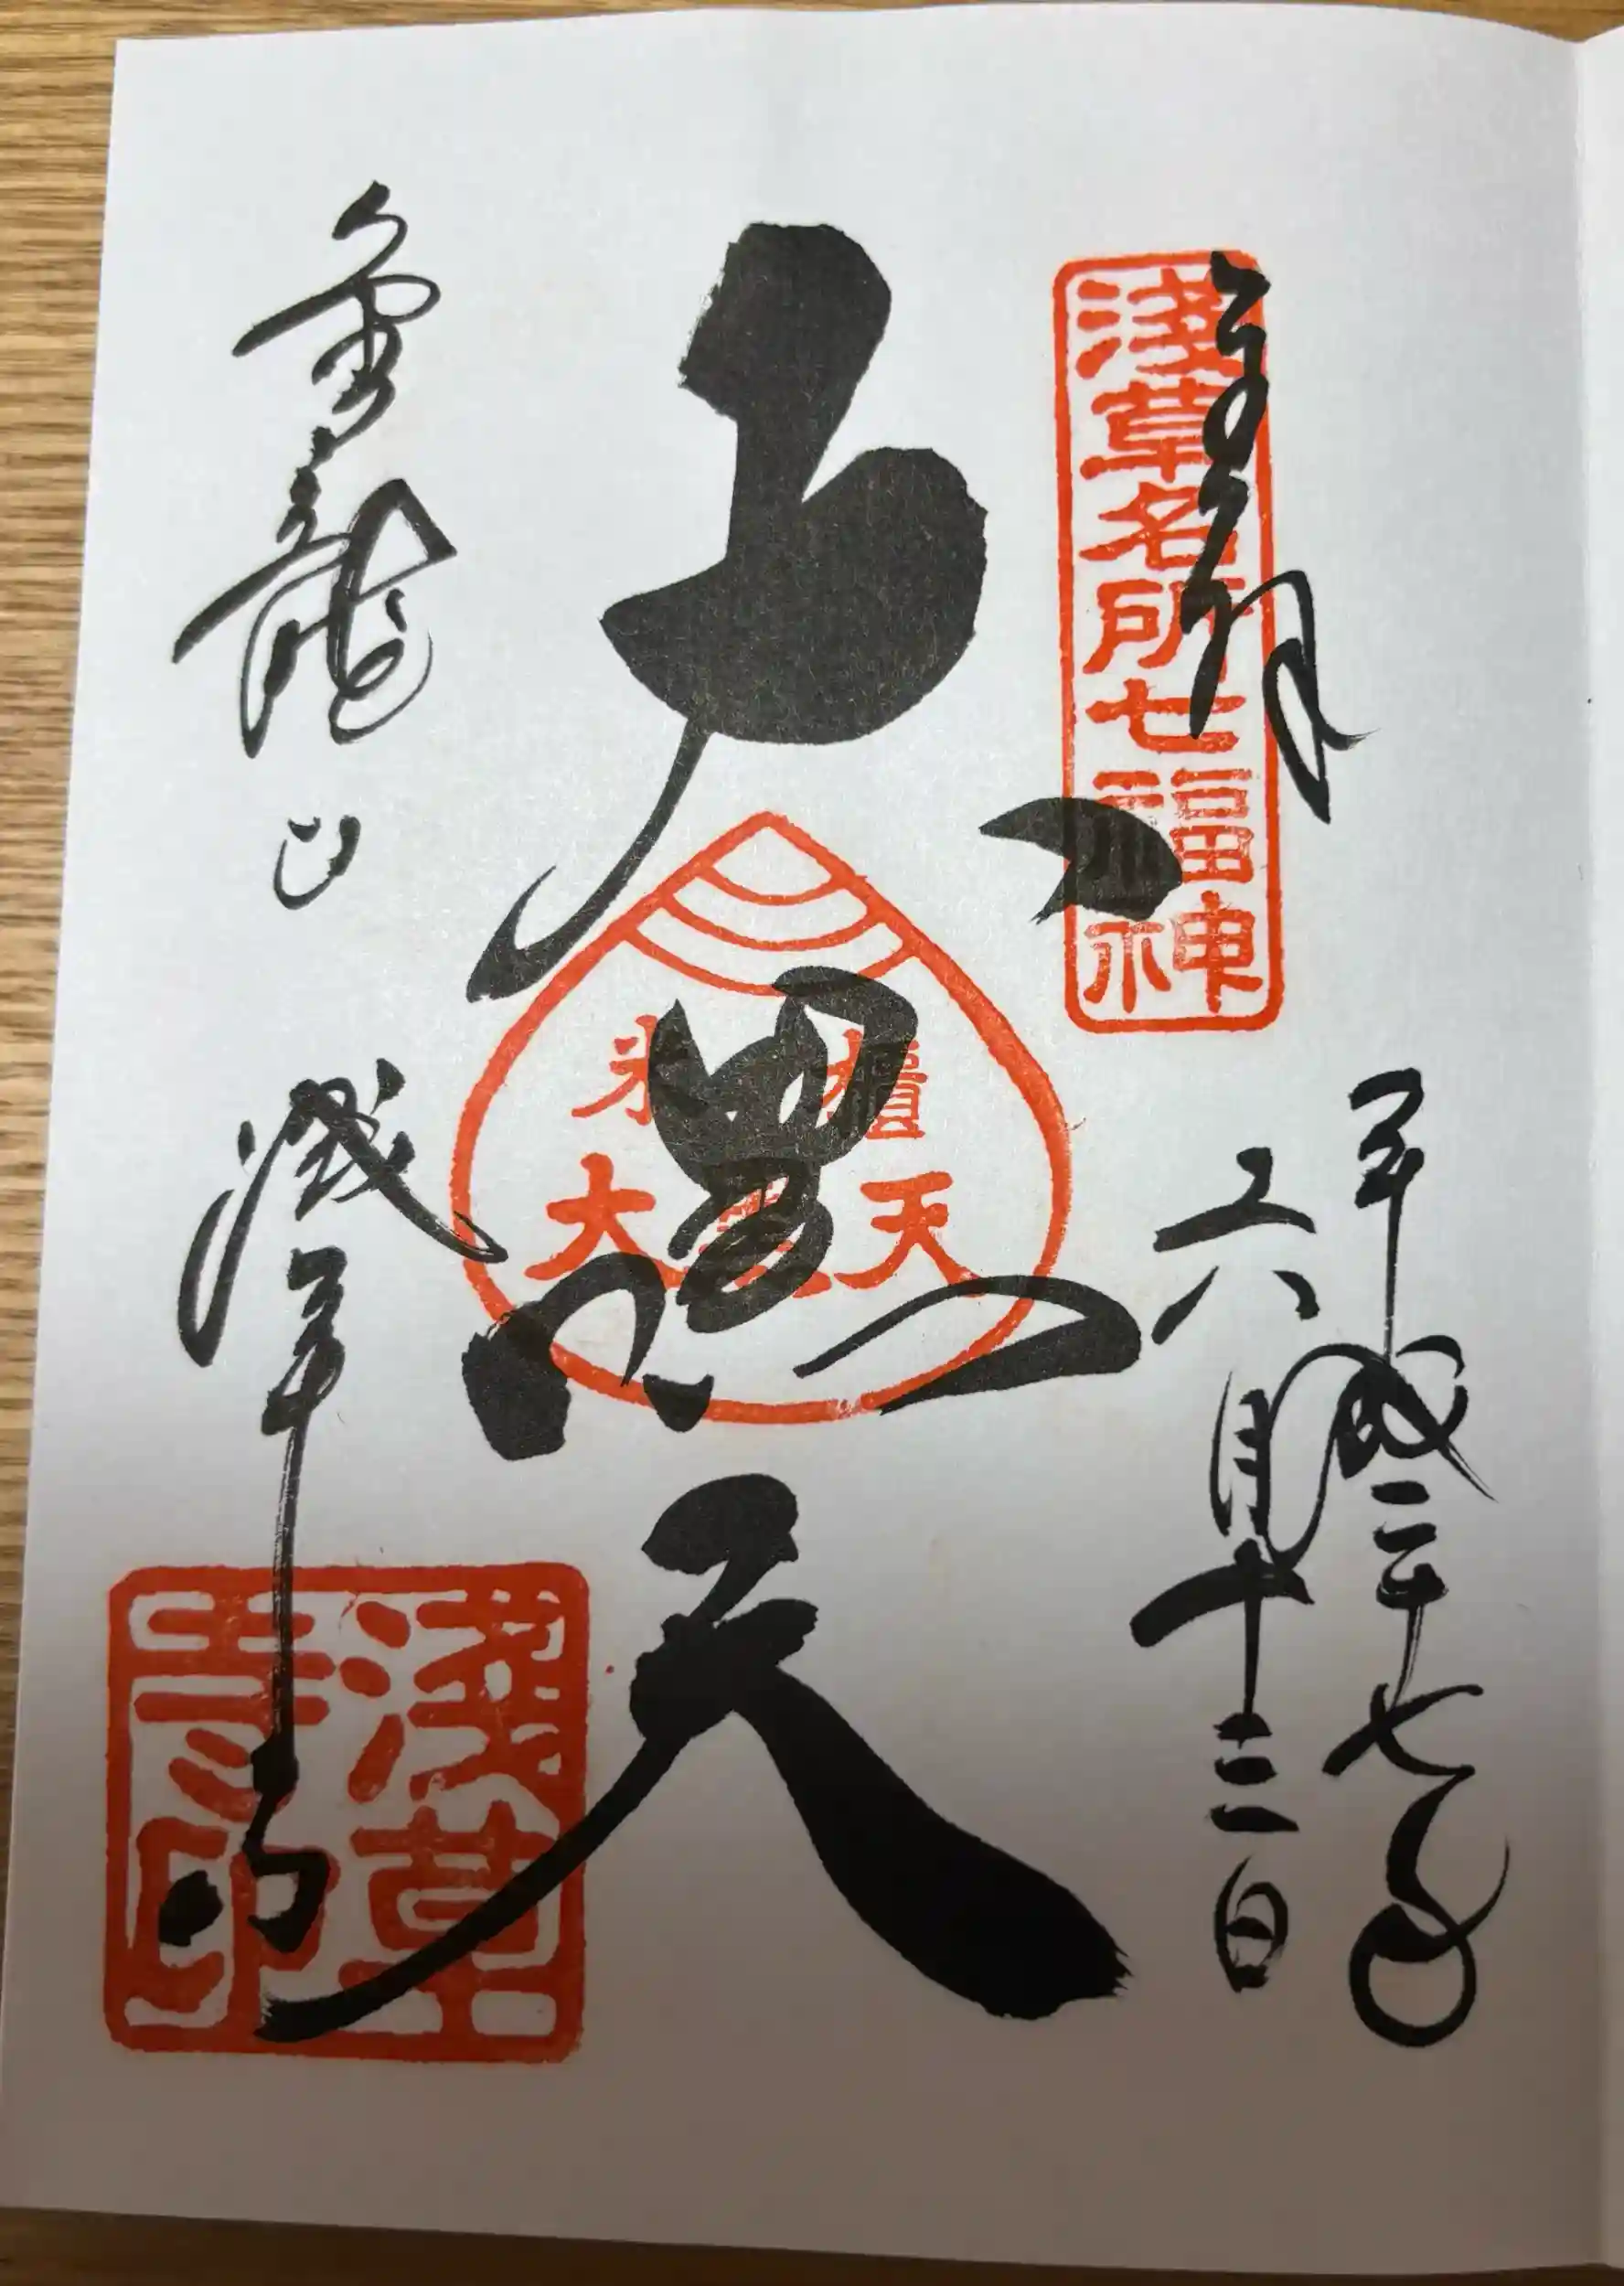 奉拝
淺草名所七福神
平成二十七年
六月十三日
大黒天
米櫃
大黒天
金龍山
浅草寺
淺草寺印